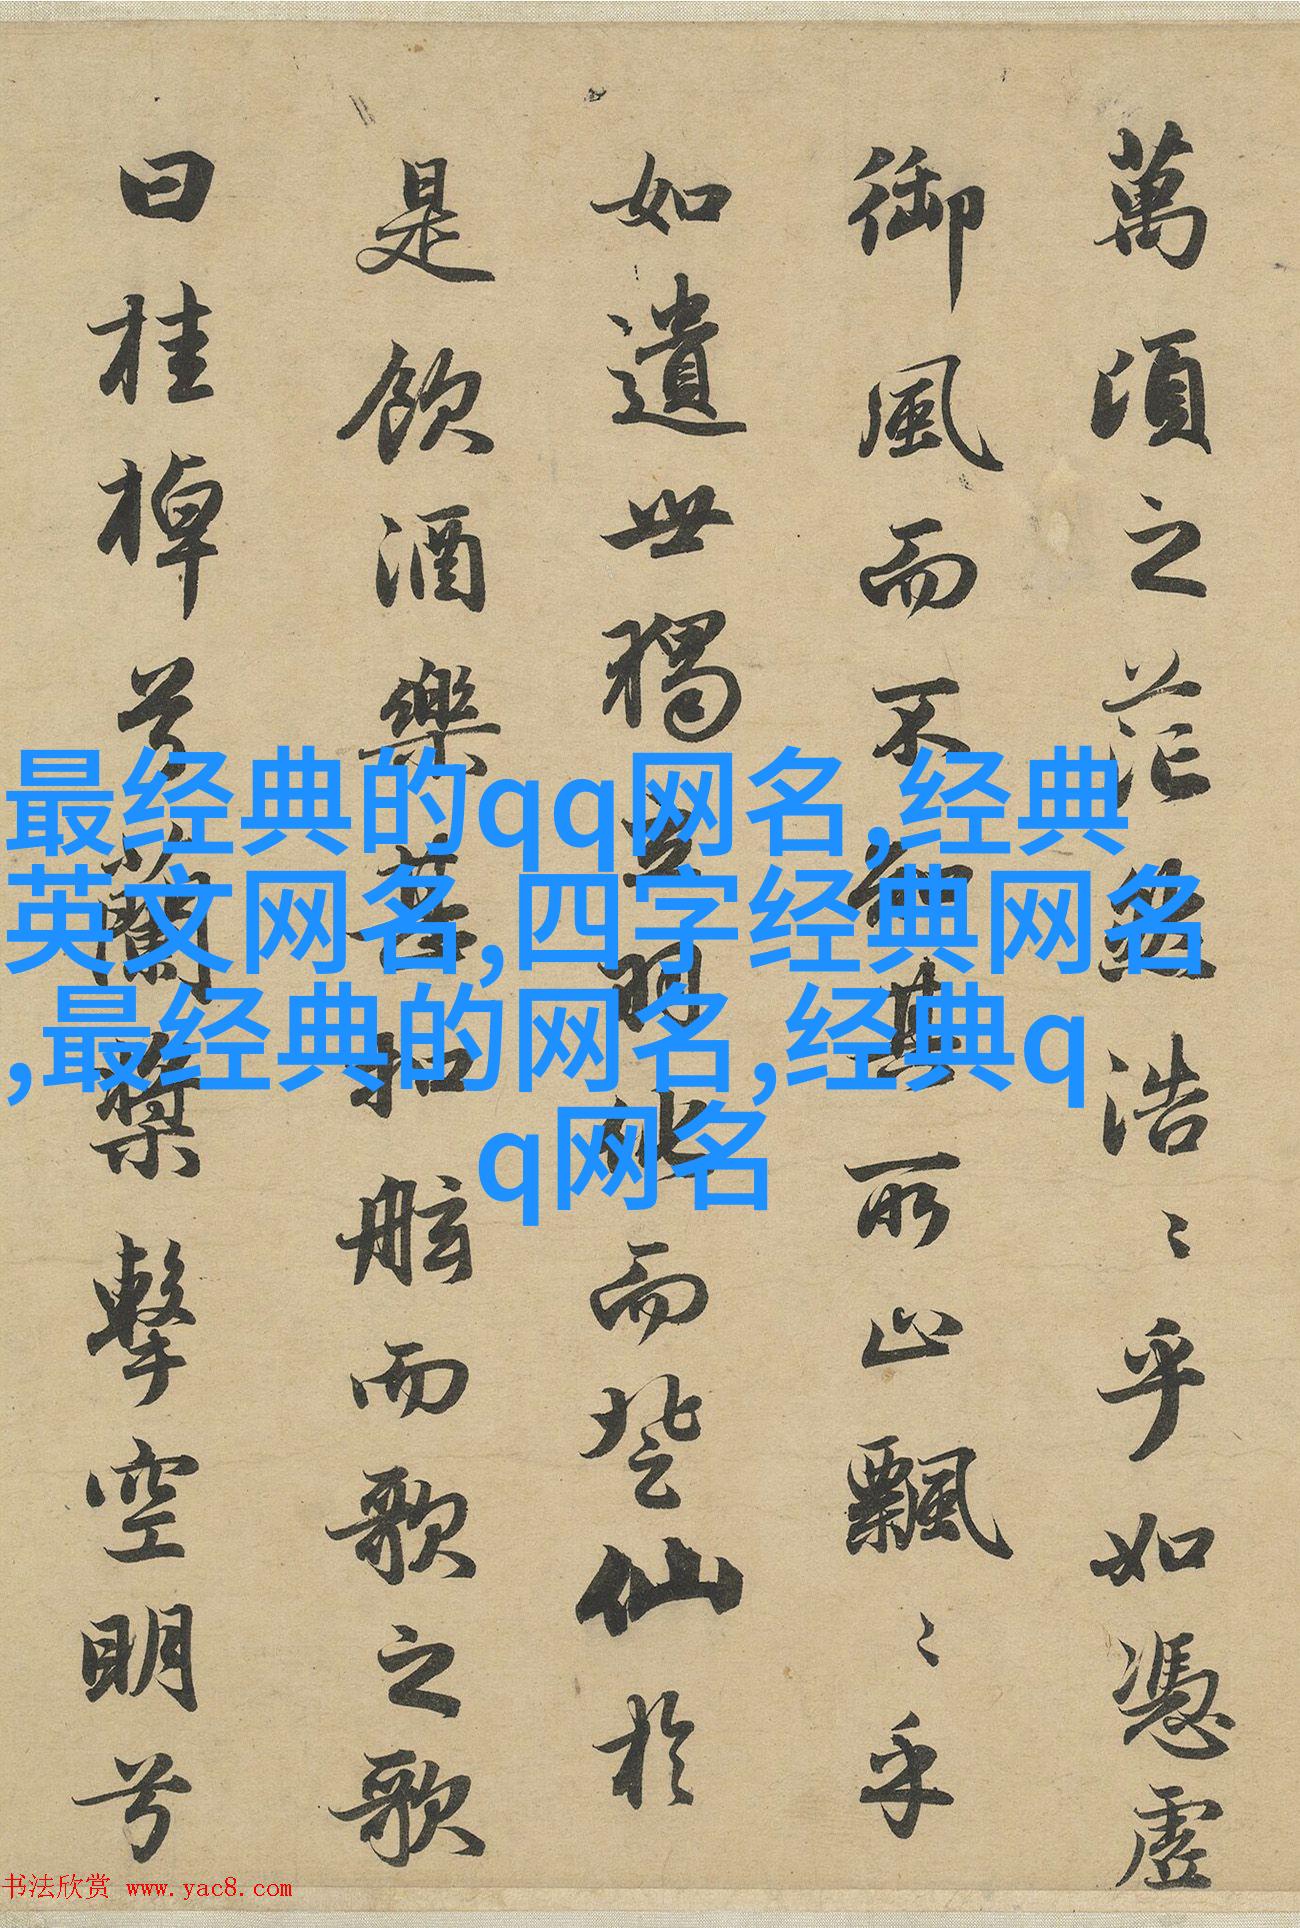 萬頃之茫然浩〻乎如憑虛
御風而不知其所止飄〻乎
如遺世獨立羽化而登仙於
是飲酒樂甚扣舷而歌之歌
曰桂棹兮蘭槳擊空明兮
最经典的qq网名,经典
英文网名,四字经典网名
,最经典的网名,经典q
q网名
书法欣赏 www.yac8.com